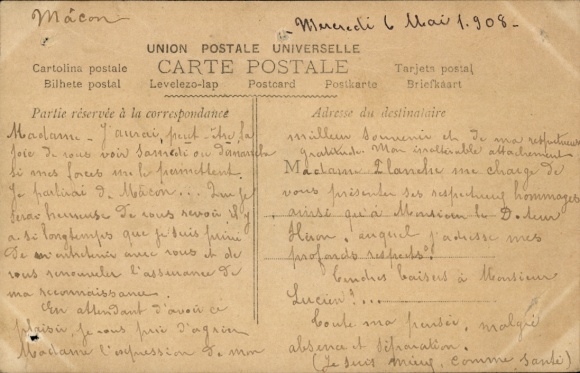 Mâcon
Mercredi 6 Mai 1908
UNION POSTALE UNIVERSELLE
CARTE POSTALE
Cartolina postale
Tarjeta postal
Bilhete postal
Levelezo-lap
Postcard
Postkarte
Briefkaart
Partie réservée à la correspondance
Madame - J'aurai, peut-être la
joie de vous voir samedi ou dimanche
si mes forces me le permettent.
Je partirai de Mâcon... Que je
serai heureuse de vous revoir, il y
a si longtemps que je suis privé
de m'entretenir avec vous et de
vous renouveler l'assurance de
ma reconnaissance.
En attendant d'avoir ce
plaisir, je vous prie d'agréer
Madame l'expression de mon
Adresse du destinataire
meilleur souvenir et de ma respectueuse
gratitude. Mon inaltérable attachement
Madame Planche me charge de
vous présenter ses respectueux hommages
ainsi qu'à Monsieur le Docteur
Héron, auquel j'adresse mes
profonds respects!
Tendres baisers à Monsieur
Lucien!...
Toute ma pensée, malgré
absence et séparation.
(Je suis mieux, comme santé)